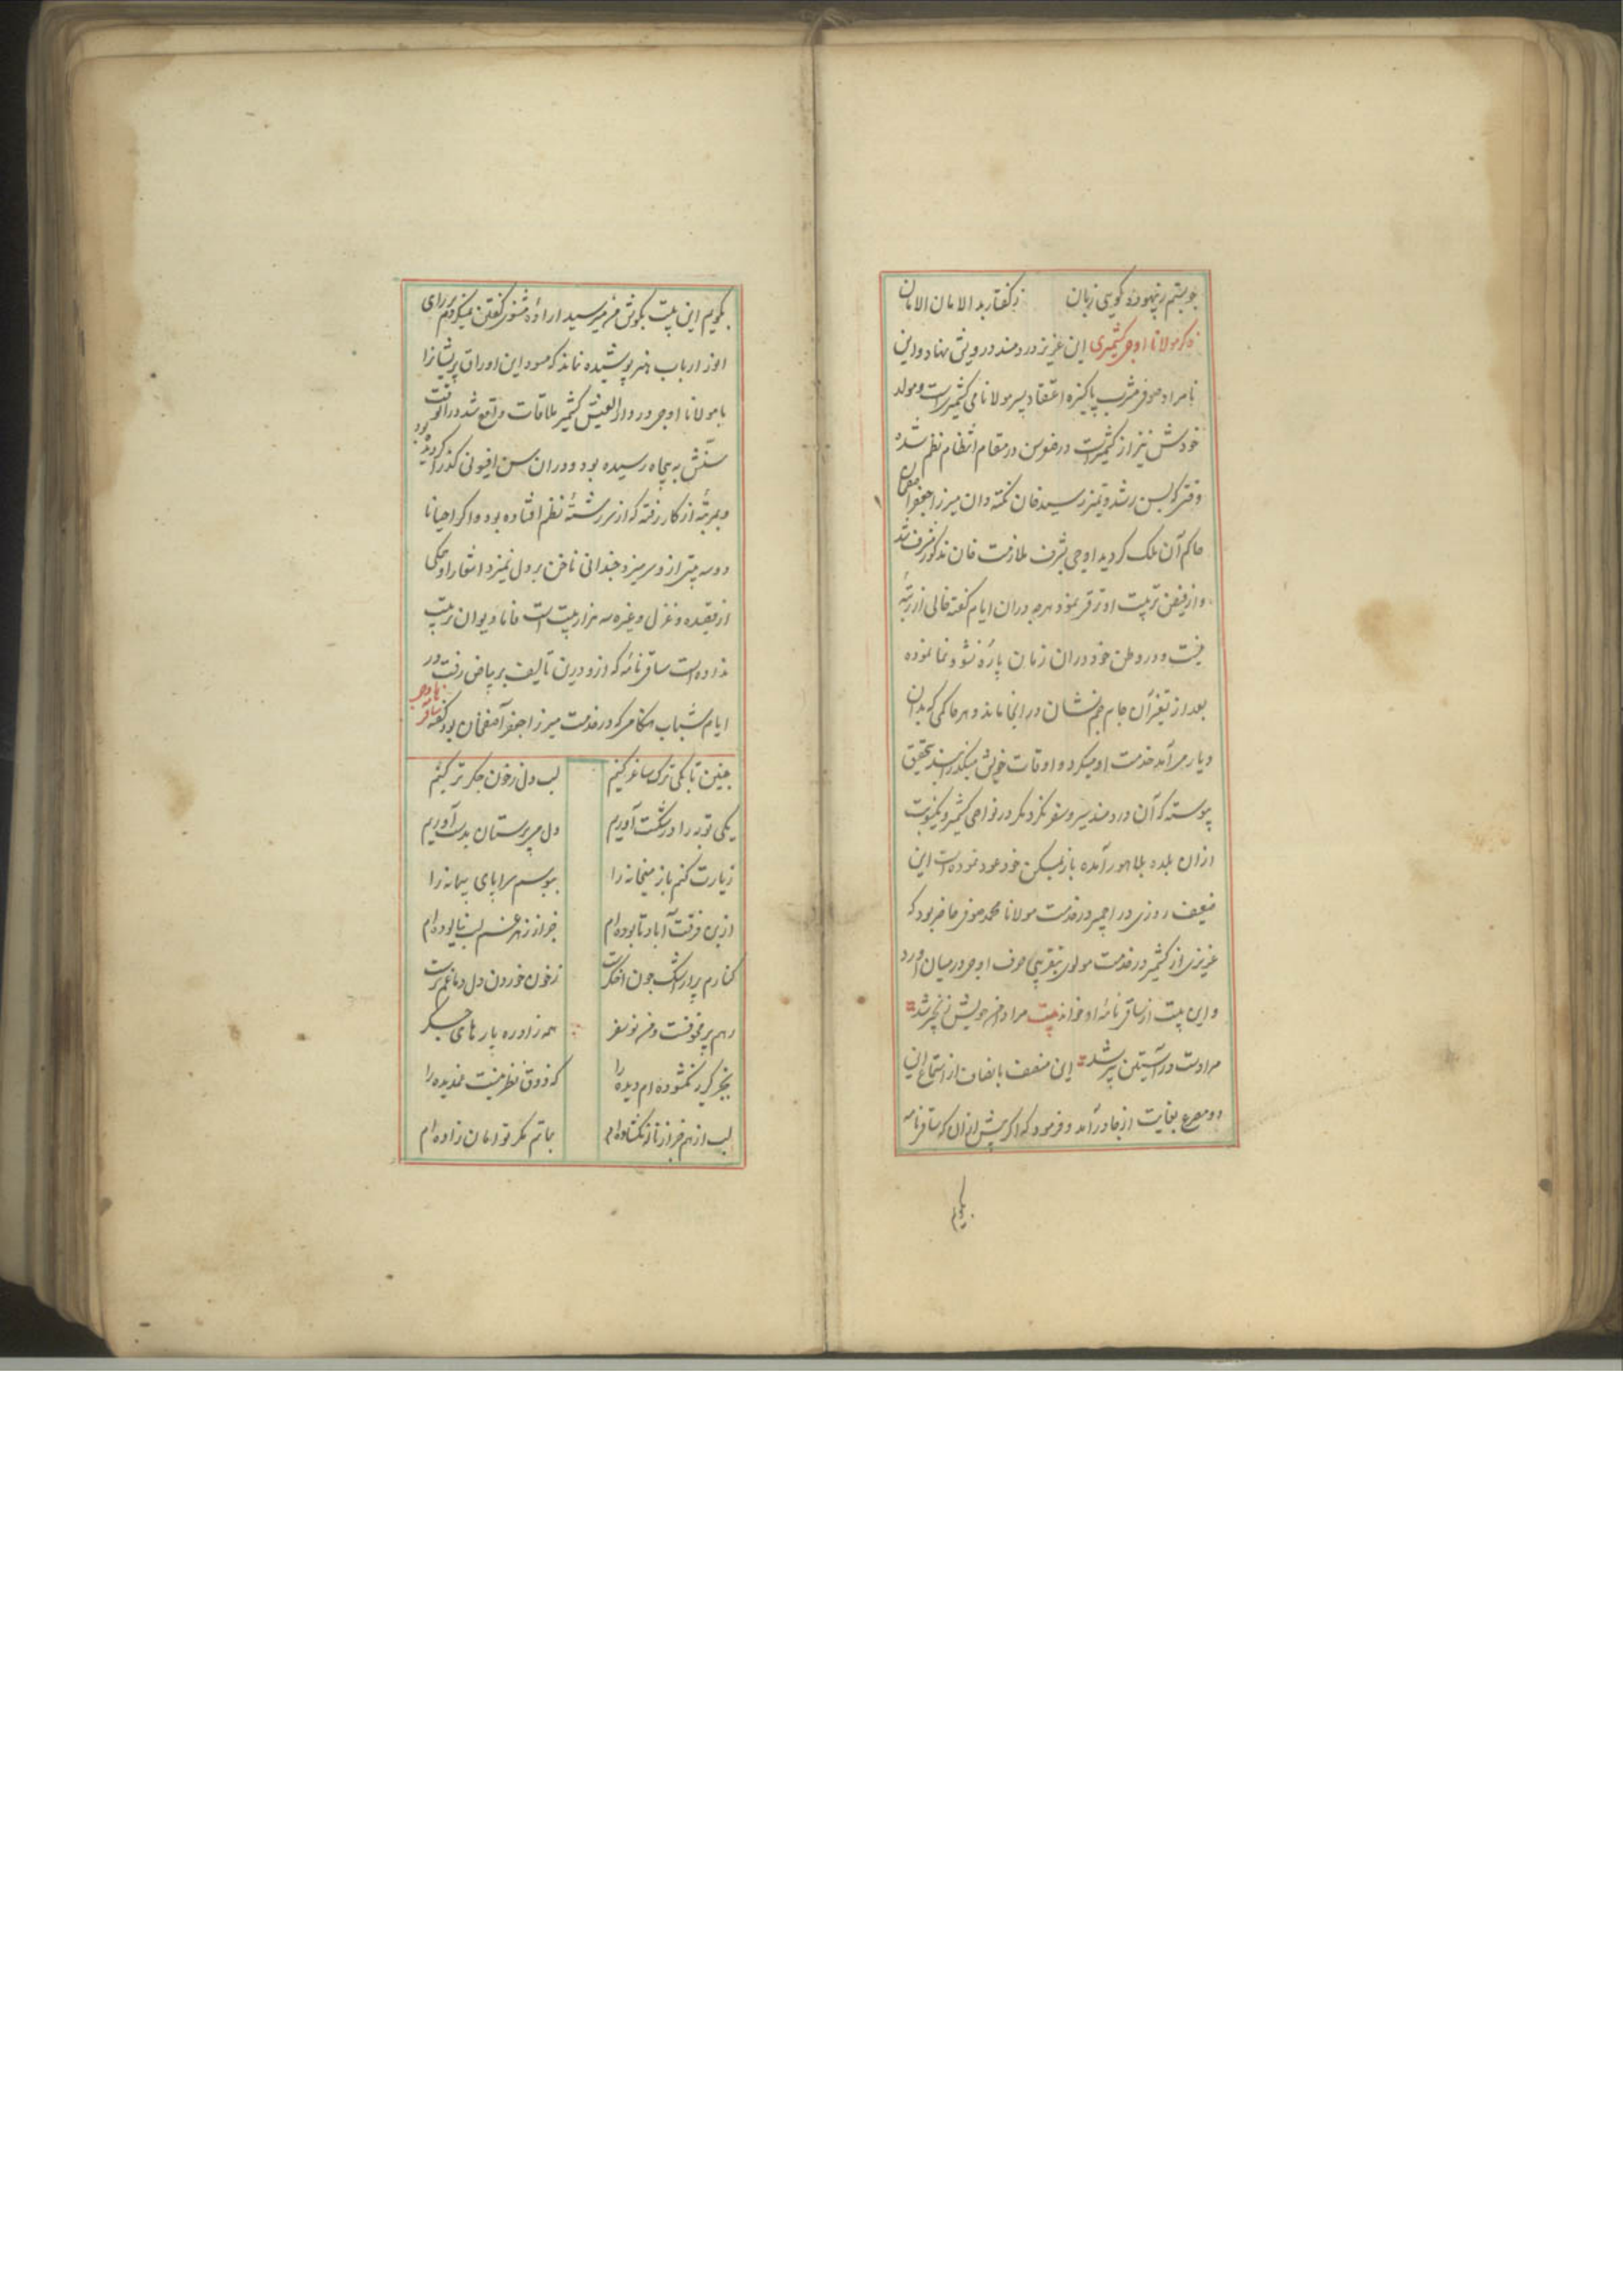 چو بستم ز بیهوده گویی زبان ز گفتار بد الامان الامان
ذکر مولانا اوجی کشمیری این عزیز دردمند درویش نهاد و این
نامراد صوفی مشرب پاکیزه اعتقاد پسر مولانا نامی کشمیریست و مولد
خودش نیز از کشمیرست در مقام انتظام نظم شده
وقتی که بسن رشد و تمیز رسید خان نکته دان میرزا جعفر آصفخان
حاکم آن ملک گردید اوجی بشرف ملازمت خان مذکور مشرف شد
و از فیض تربیت او ترقی نمود هرچه دران ایام گفته خالی از رتبهٔ
نیست و در وطن خود دران زمان پارهٔ نشو و نما نموده
بعد از تغیر آن جام جم نشان در انجا ماند و هر حاکمی که بدان
دیار می آمد خدمت او میکرد و اوقات خویش میگذرانید بتحقیق
پیوسته که آن دردمند سیر و سفر نکرد مگر در نواحی کشمیر و یکنوبت
ازان بلده بلاهور آمده باز بمسکن خود عود نموده است این
ضعیف روزی در اجمیر در خدمت مولانا محمد صوفی حاضر بود که
عزیزی از کشمیر در خدمت مولوی بتقریبی حرف اوجی در میان آورد
و این بیت از ساقی نامهٔ او خواند بیت مراد من خویش ز نجیر شد
مرادت در آستین پیر شد این ضعف با نصاف از استماع این
دو مصرع بغایت از جا درآمد و فرمود که اگر پیش ازان که ساقی نامه
بگویم
بگویم این بیت بگوش من میرسید ارادهٔ مثنوی گفتن نمیکردم بر رای
انور ارباب هنر پوشیده نماند که مسود این اوراق پریشانرا
با مولانا اوجی در دار العیش کشمیر ملاقات واقع شد در انوقت
سنش به پنجاه رسیده بود و دران سن افیونی گذرا گردیده بود
و بمرتبهٔ از کار رفته که از سر رشتهٔ نظم افتاده بود و اگر احیانا
دو سه بیتی ازو سر میزد چندانی ناخن بر دل نمیزد اشعار اوجی
از قصیده و غزل و غیره سه هزار بیت است فاما دیوان ترتیب
نداده است ساقی نامهٔ که ازو درین تالیف بر بیاض رفت در
ایام شباب هنگامی که در خدمت میرزا جعفر آصفخان بود گفته ساقی نامه اوجی
چنین تا بکی ترک ساغر کنیم لب دل ز خون جگر تر کنیم
یکی توبه را در شکست آوریم دل می پرستان بدست آوریم
زیارت کنم باز میخانه را ببوسم سراپای پیمانه را
ازین فرقت آباد تا بوده ام جز از زهر غم لب نیالوده ام
کنارم پر از اشک چون اخگرست ز خون خوردن دل دماغم ترست
رهم پر مخوفست و من نو سفر همه زاد ره پارهای جگر
بجز گریه نگشوده ام دیده را که ذوق نظر نیست غمدیده را
لب از هم جز از ناله نگشاده ام بماتم مگر توامان زاده ام